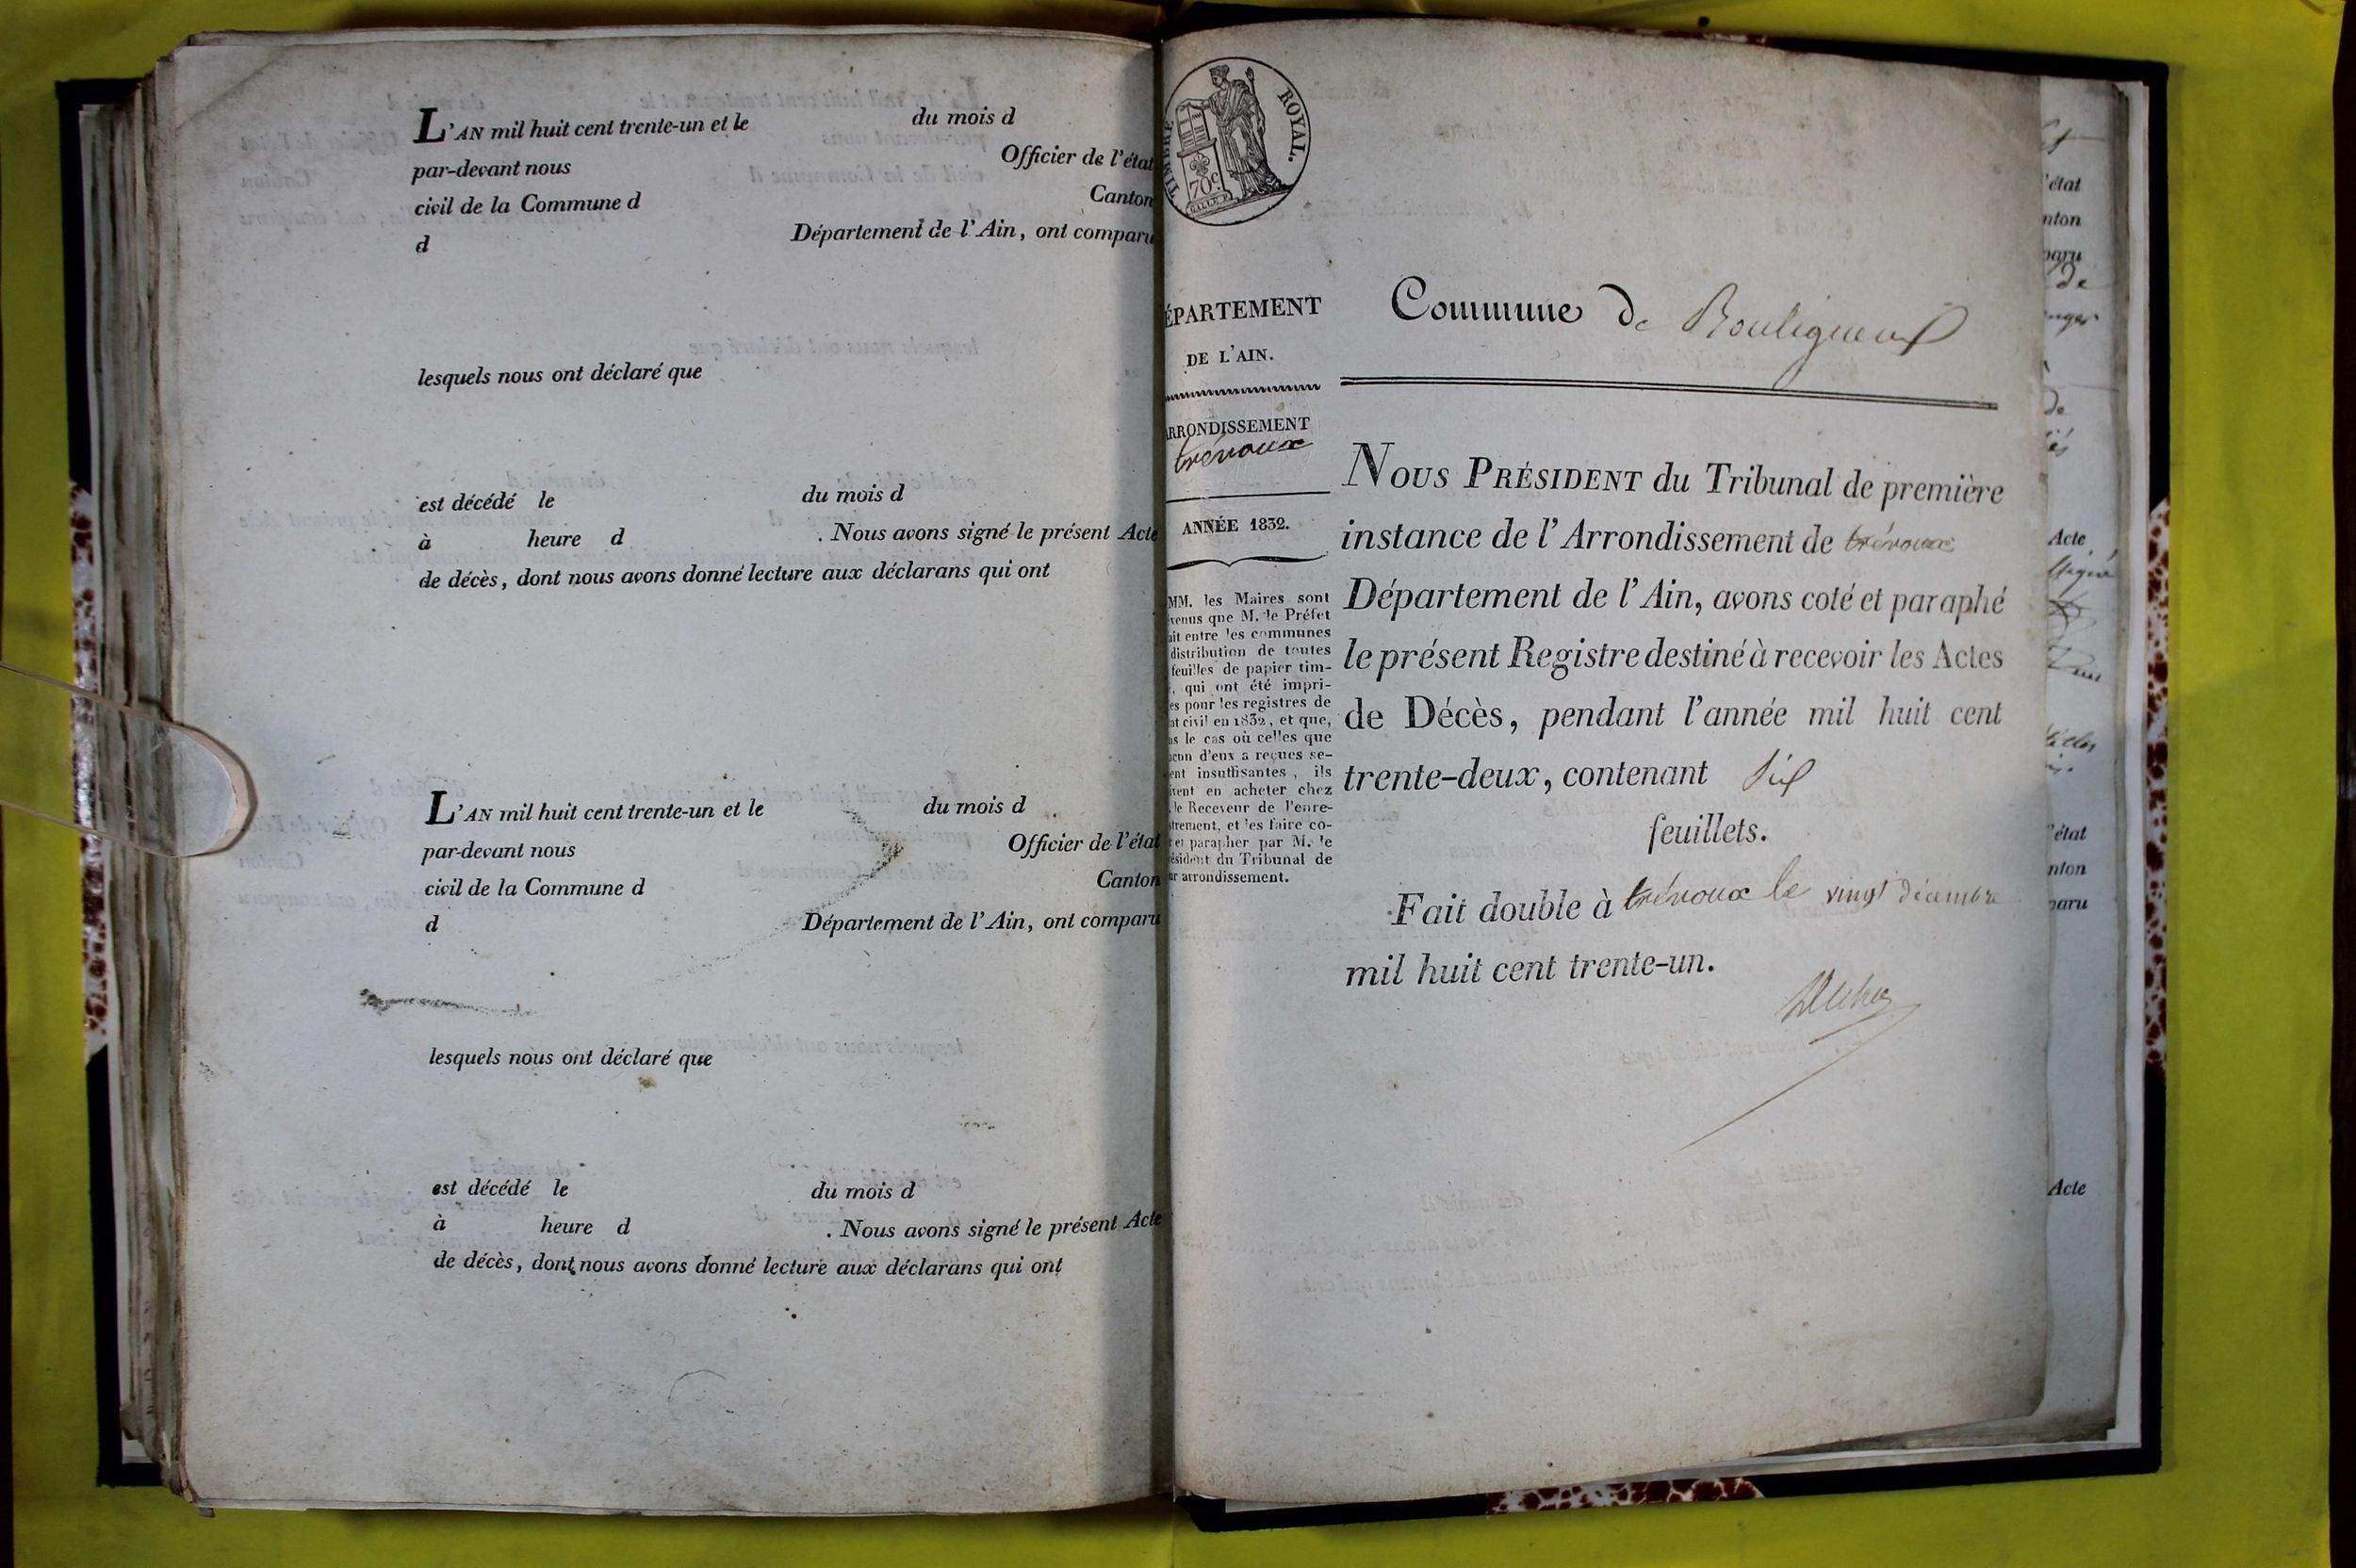 L'AN mil huit cent trente-un et le du mois d
par-devant nous Officier de l'état
civil de la Commune d Canton
d Département de l'Ain, ont comparu
lesquels nous ont déclaré que
est décédé le du mois d
à heure d . Nous avons signé le présent Acte
de décès, dont nous avons donné lecture aux déclarans qui ont
L'AN mil huit cent trente-un et le du mois d
par-devant nous Officier de l'état
civil de la Commune d Canton
d Département de l'Ain, ont comparu
lesquels nous ont déclaré que
est décédé le du mois d
à heure d . Nous avons signé le présent Acte
de décès, dont nous avons donné lecture aux déclarans qui ont
TIMBRE ROYAL.
70c
ÉPARTEMENT
DE L'AIN.
RRONDISSEMENT
trévoux
ANNÉE 1832.
MM. les Maires sont
venus que M. le Préfet
ait entre les communes
distribution de toutes
feuilles de papier tim-
, qui ont été impri-
es pour les registres de
at civil en 1832, et que,
ns le cas où celles que
acun d'eux a reçues se-
ent insuffisantes, ils
ivent en acheter chez
le Receveur de l'enre-
trement, et les faire co-
r et parapher par M. le
ésident du Tribunal de
ur arrondissement.
Commune de Bouligneux
NOUS PRÉSIDENT du Tribunal de première
instance de l'Arrondissement de trévoux
Département de l'Ain, avons coté et paraphé
le présent Registre destiné à recevoir les Actes
de Décès, pendant l'année mil huit cent
trente-deux, contenant Six
feuillets.
Fait double à trévoux le vingt décembre
mil huit cent trente-un.
'état
nton
paru
de
Acte
l'état
nton
paru
Acte